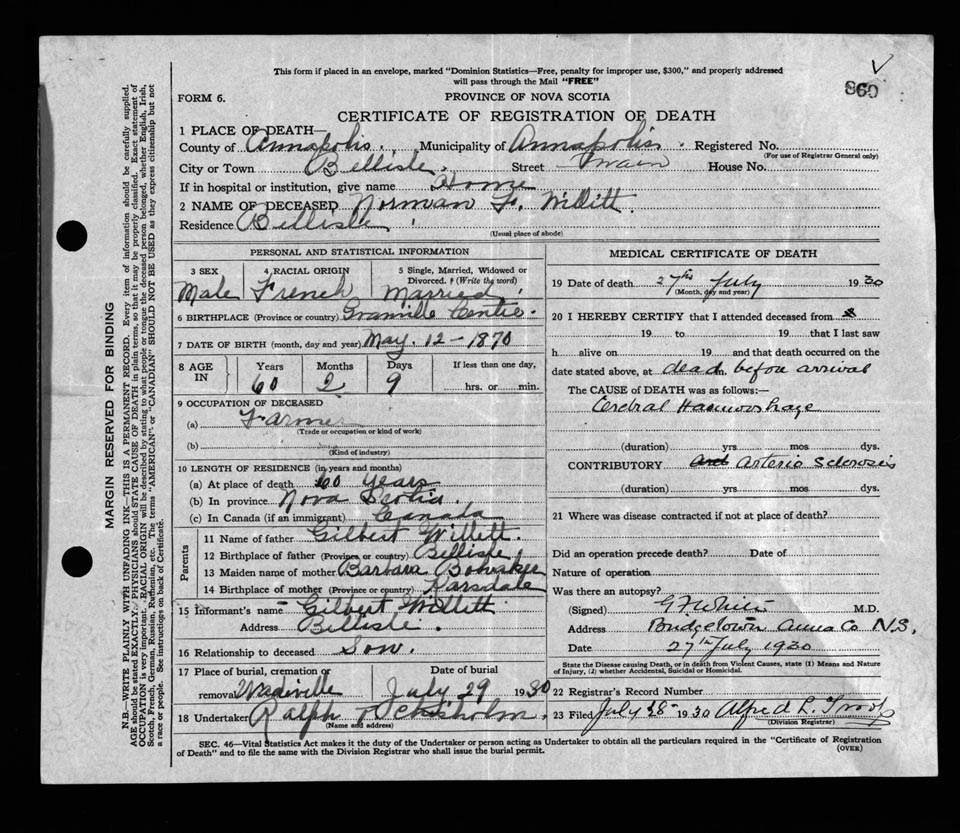 This form if placed in an envelope, marked "Dominion Statistics—Free, penalty for improper use, $300," and properly addressed
will pass through the Mail "FREE"
860
FORM 6.
PROVINCE OF NOVA SCOTIA
CERTIFICATE OF REGISTRATION OF DEATH
1 PLACE OF DEATH—
County of Annapolis. Municipality of Annapolis. Registered No.
(For use of Registrar General only)
City or Town Bellisle. Street House No.
If in hospital or institution, give name Home
2 NAME OF DECEASED Norman F. Willitt.
Residence Bellisle
(Usual place of abode)
PERSONAL AND STATISTICAL INFORMATION
3 SEX 4 RACIAL ORIGIN 5 Single, Married, Widowed or
Divorced. (Write the word)
Male French Married.
6 BIRTHPLACE (Province or country) Granville Centre.
7 DATE OF BIRTH (month, day and year) May. 12 - 1870
8 AGE IN Years Months Days If less than one day,
60 2 9 hrs. or min.
9 OCCUPATION OF DECEASED
(a) Farmer
(Trade or occupation or kind of work)
(b)
(Kind of industry)
10 LENGTH OF RESIDENCE (in years and months)
(a) At place of death 60 years
(b) In province Nova Scotia.
(c) In Canada (if an immigrant) Canada
Parents
11 Name of father Gilbert Willett.
12 Birthplace of father (Province or country) Bellisle.
13 Maiden name of mother Barbara
14 Birthplace of mother (Province or country) Karsdale
15 Informant's name Gilbert Willett
Address Bellisle.
16 Relationship to deceased Son.
17 Place of burial, cremation or Date of burial
removal July 29 1930
18 Undertaker Ralph Chisholm.
(Name and address)
MEDICAL CERTIFICATE OF DEATH
19 Date of death 27th July 1930
(Month, day and year)
20 I HEREBY CERTIFY that I attended deceased from
19 to 19 that I last saw
h alive on 19 and that death occurred on the
date stated above, at dead m. before arrival
The CAUSE of DEATH was as follows:—
Cerebral Haemorrhage
(duration) yrs. mos. dys.
CONTRIBUTORY Arterio Sclerosis
(duration) yrs. mos. dys.
21 Where was disease contracted if not at place of death?
Did an operation precede death? Date of
Nature of operation
Was there an autopsy?
(Signed) M.D.
Address Bridgetown Anna Co N.S.
Date 27th July 1930
State the Disease causing Death, or in death from Violent Causes, state (1) Means and Nature
of Injury, (2) whether Accidental, Suicidal or Homicidal.
22 Registrar's Record Number
23 Filed July 28 1930 Alfred L. Troop
(Division Registrar)
SEC. 46—Vital Statistics Act makes it the duty of the Undertaker or person acting as Undertaker to obtain all the particulars required in the "Certificate of Registration
of Death" and to file the same with the Division Registrar who shall issue the burial permit. (OVER)
MARGIN RESERVED FOR BINDING
N.B.—WRITE PLAINLY WITH UNFADING INK—THIS IS A PERMANENT RECORD. Every item of information should be carefully supplied.
AGE should be stated EXACTLY. PHYSICIANS should STATE CAUSE OF DEATH in plain terms, so that it may be properly classified. Exact statement of
OCCUPATION is very important. RACIAL ORIGIN will be described by stating to what people or tongue the deceased person belonged, whether English, Irish,
Scotch, French, German, Russian, Ruthenian, etc. The terms "AMERICAN" or "CANADIAN" SHOULD NOT BE USED as they express citizenship but not
a race or people. See instructions on back of Certificate.